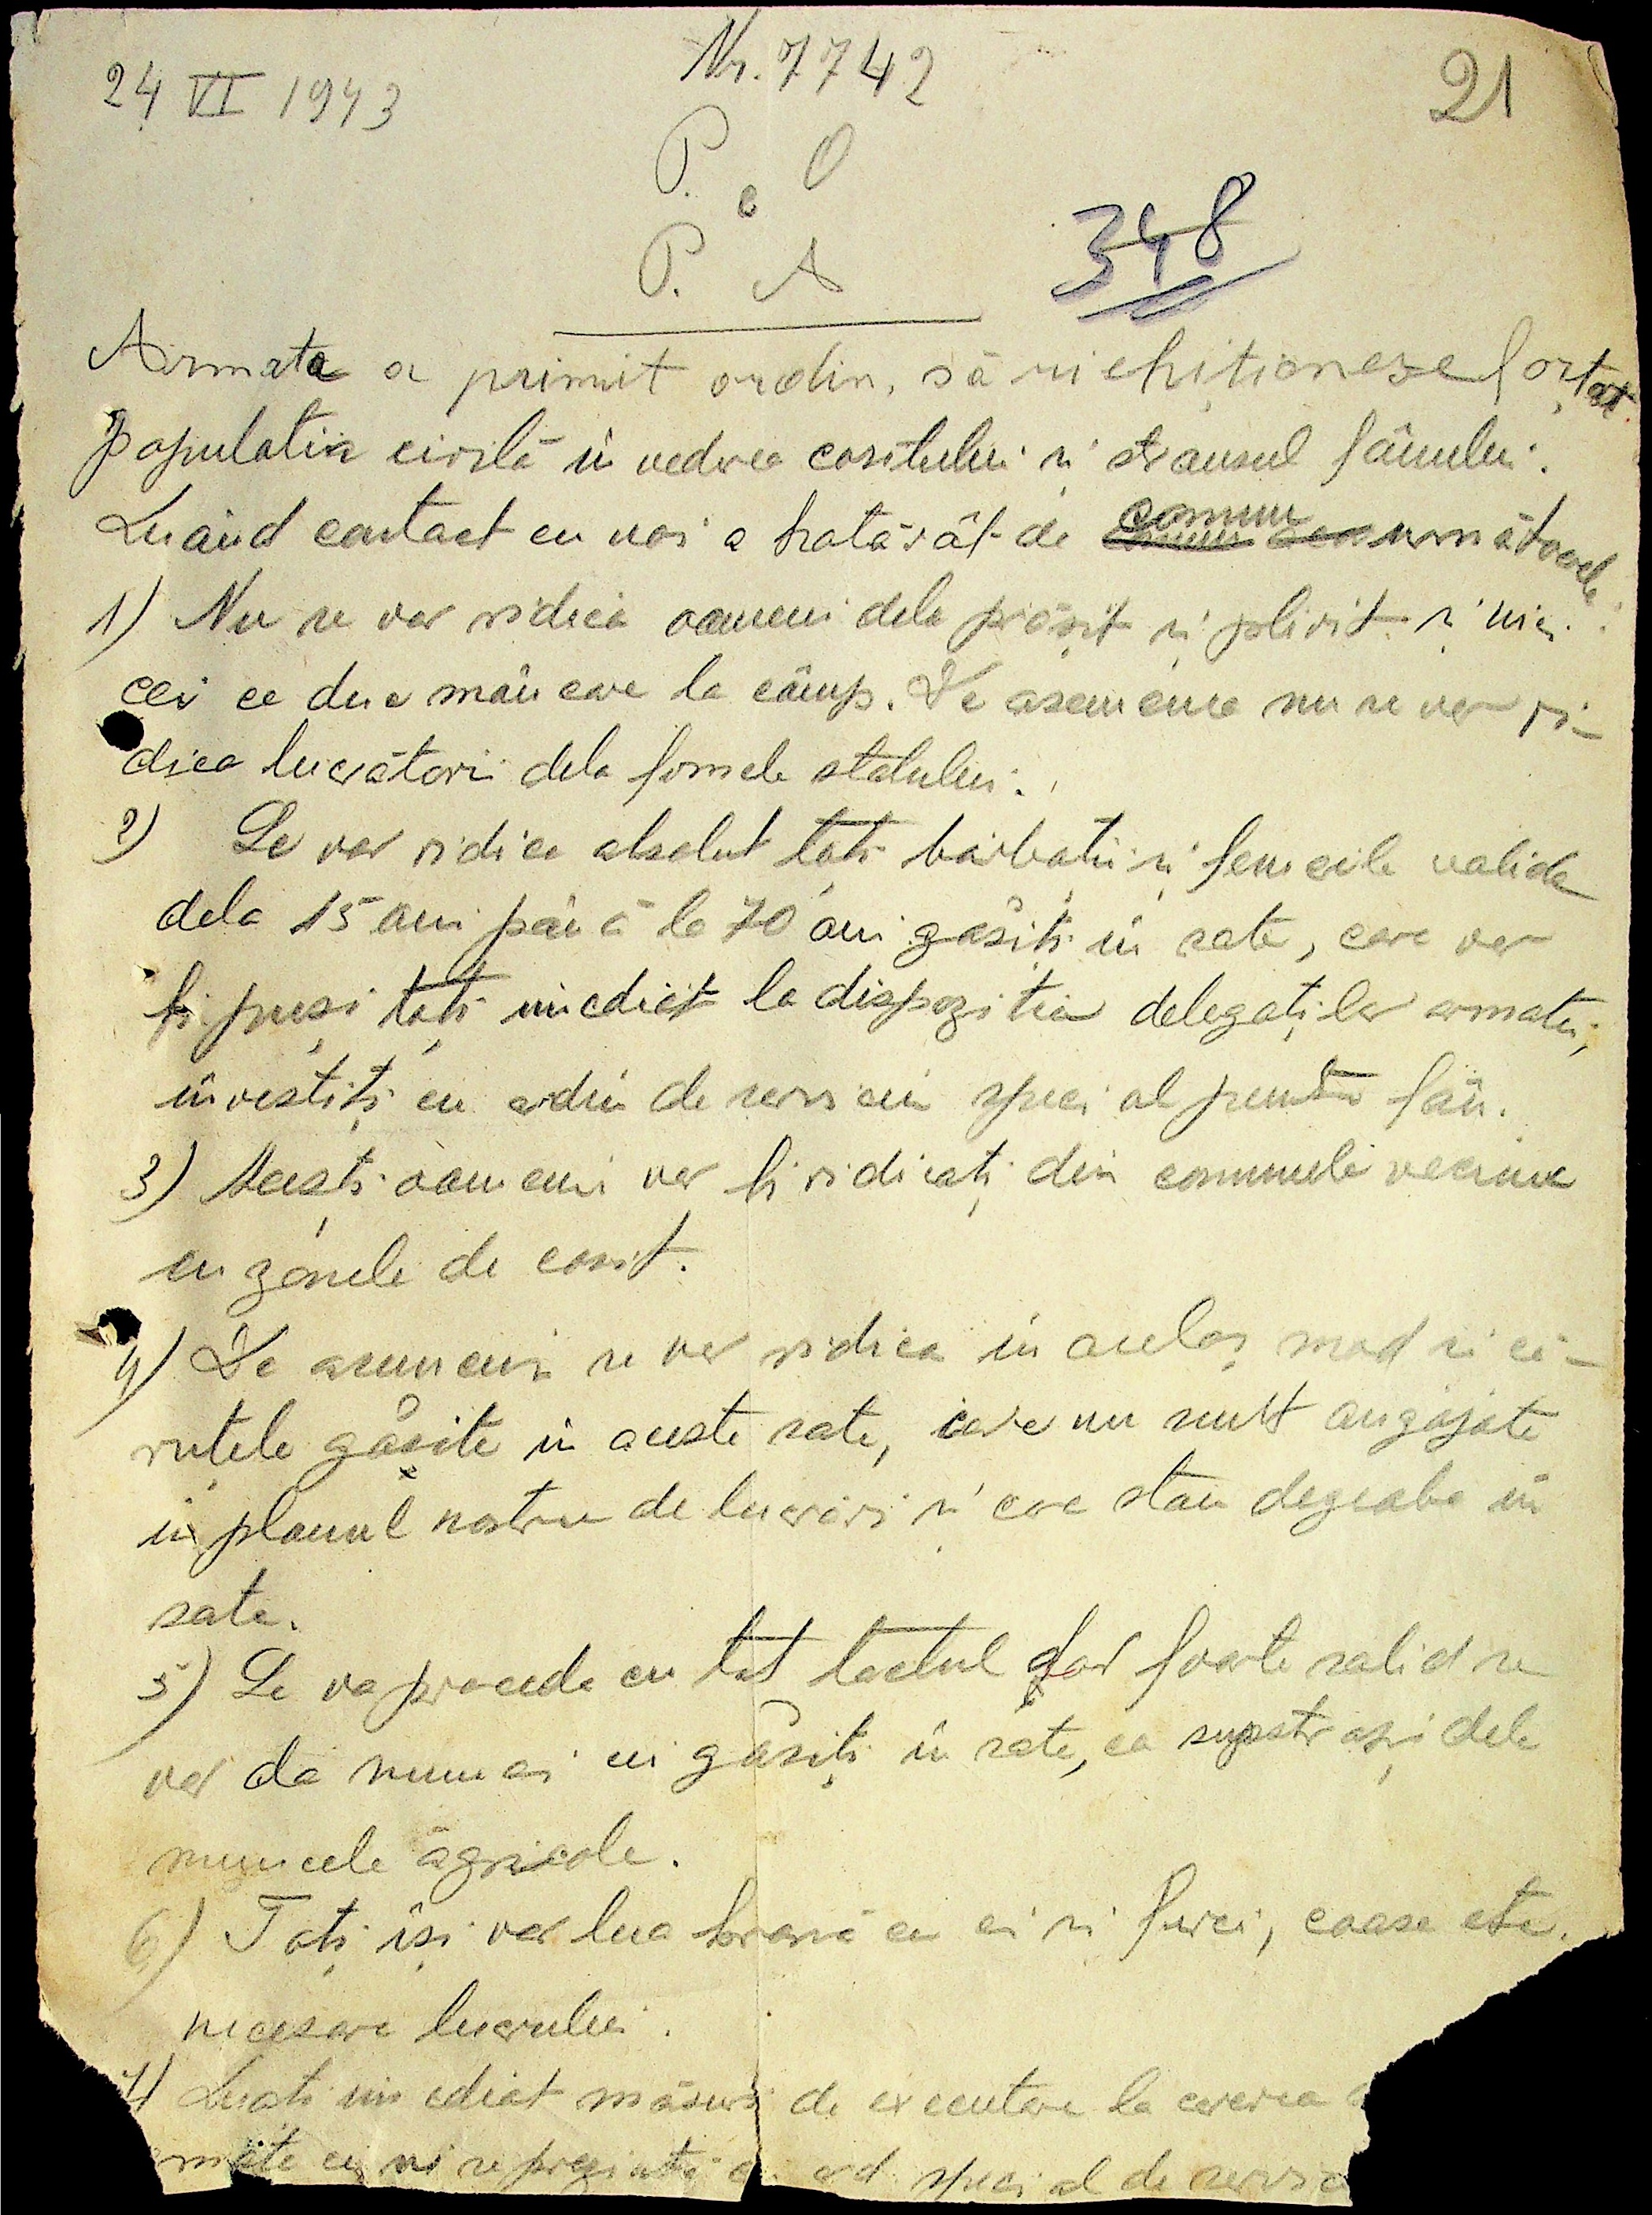 24 VI 1943
Nr. 7742
21
P. O
c
P. A
348
Armata a primit ordin, să richiționeze forțat
populatia civilă în vedrea cositului și stransul fânului.
Luând contact cu noi a hotărât de comun următoarele:
1) Nu se vor ridica oameni dela prășit și plivit și nici
cei ce duc mâncare la câmp. De asemenea nu se vor ri-
dica lucrători dela fermele statului.
2) Se vor ridica absolut toți bărbații și femeile valide
dela 15 ani până la 70 ani găsiți în sate, care vor
fi puși toți imediat la dispoziția delegaților armatei,
investiți cu ordin de serviciu special pentru fân.
3) Acești oameni vor fi ridicați din comunele vecine
cu zonele de cosit.
4) De asemeni se vor ridica în acelaș mod și că-
ruțele găsite în aceste sate, care nu sunt angajate
în planul nostru de lucrări și care stau degeaba în
sate.
5) Se va proceda cu tot tactul dar foarte solid se
vor da numai cei găsiți în sate, ca sustrași dela
muncele agricole.
6) Toți își vor lua hrană cu ei și furci, coase etc.
necesare lucrului.
7) Luați imediat măsuri de executare la cererea
mate ce vi se prezintă ord special de servici